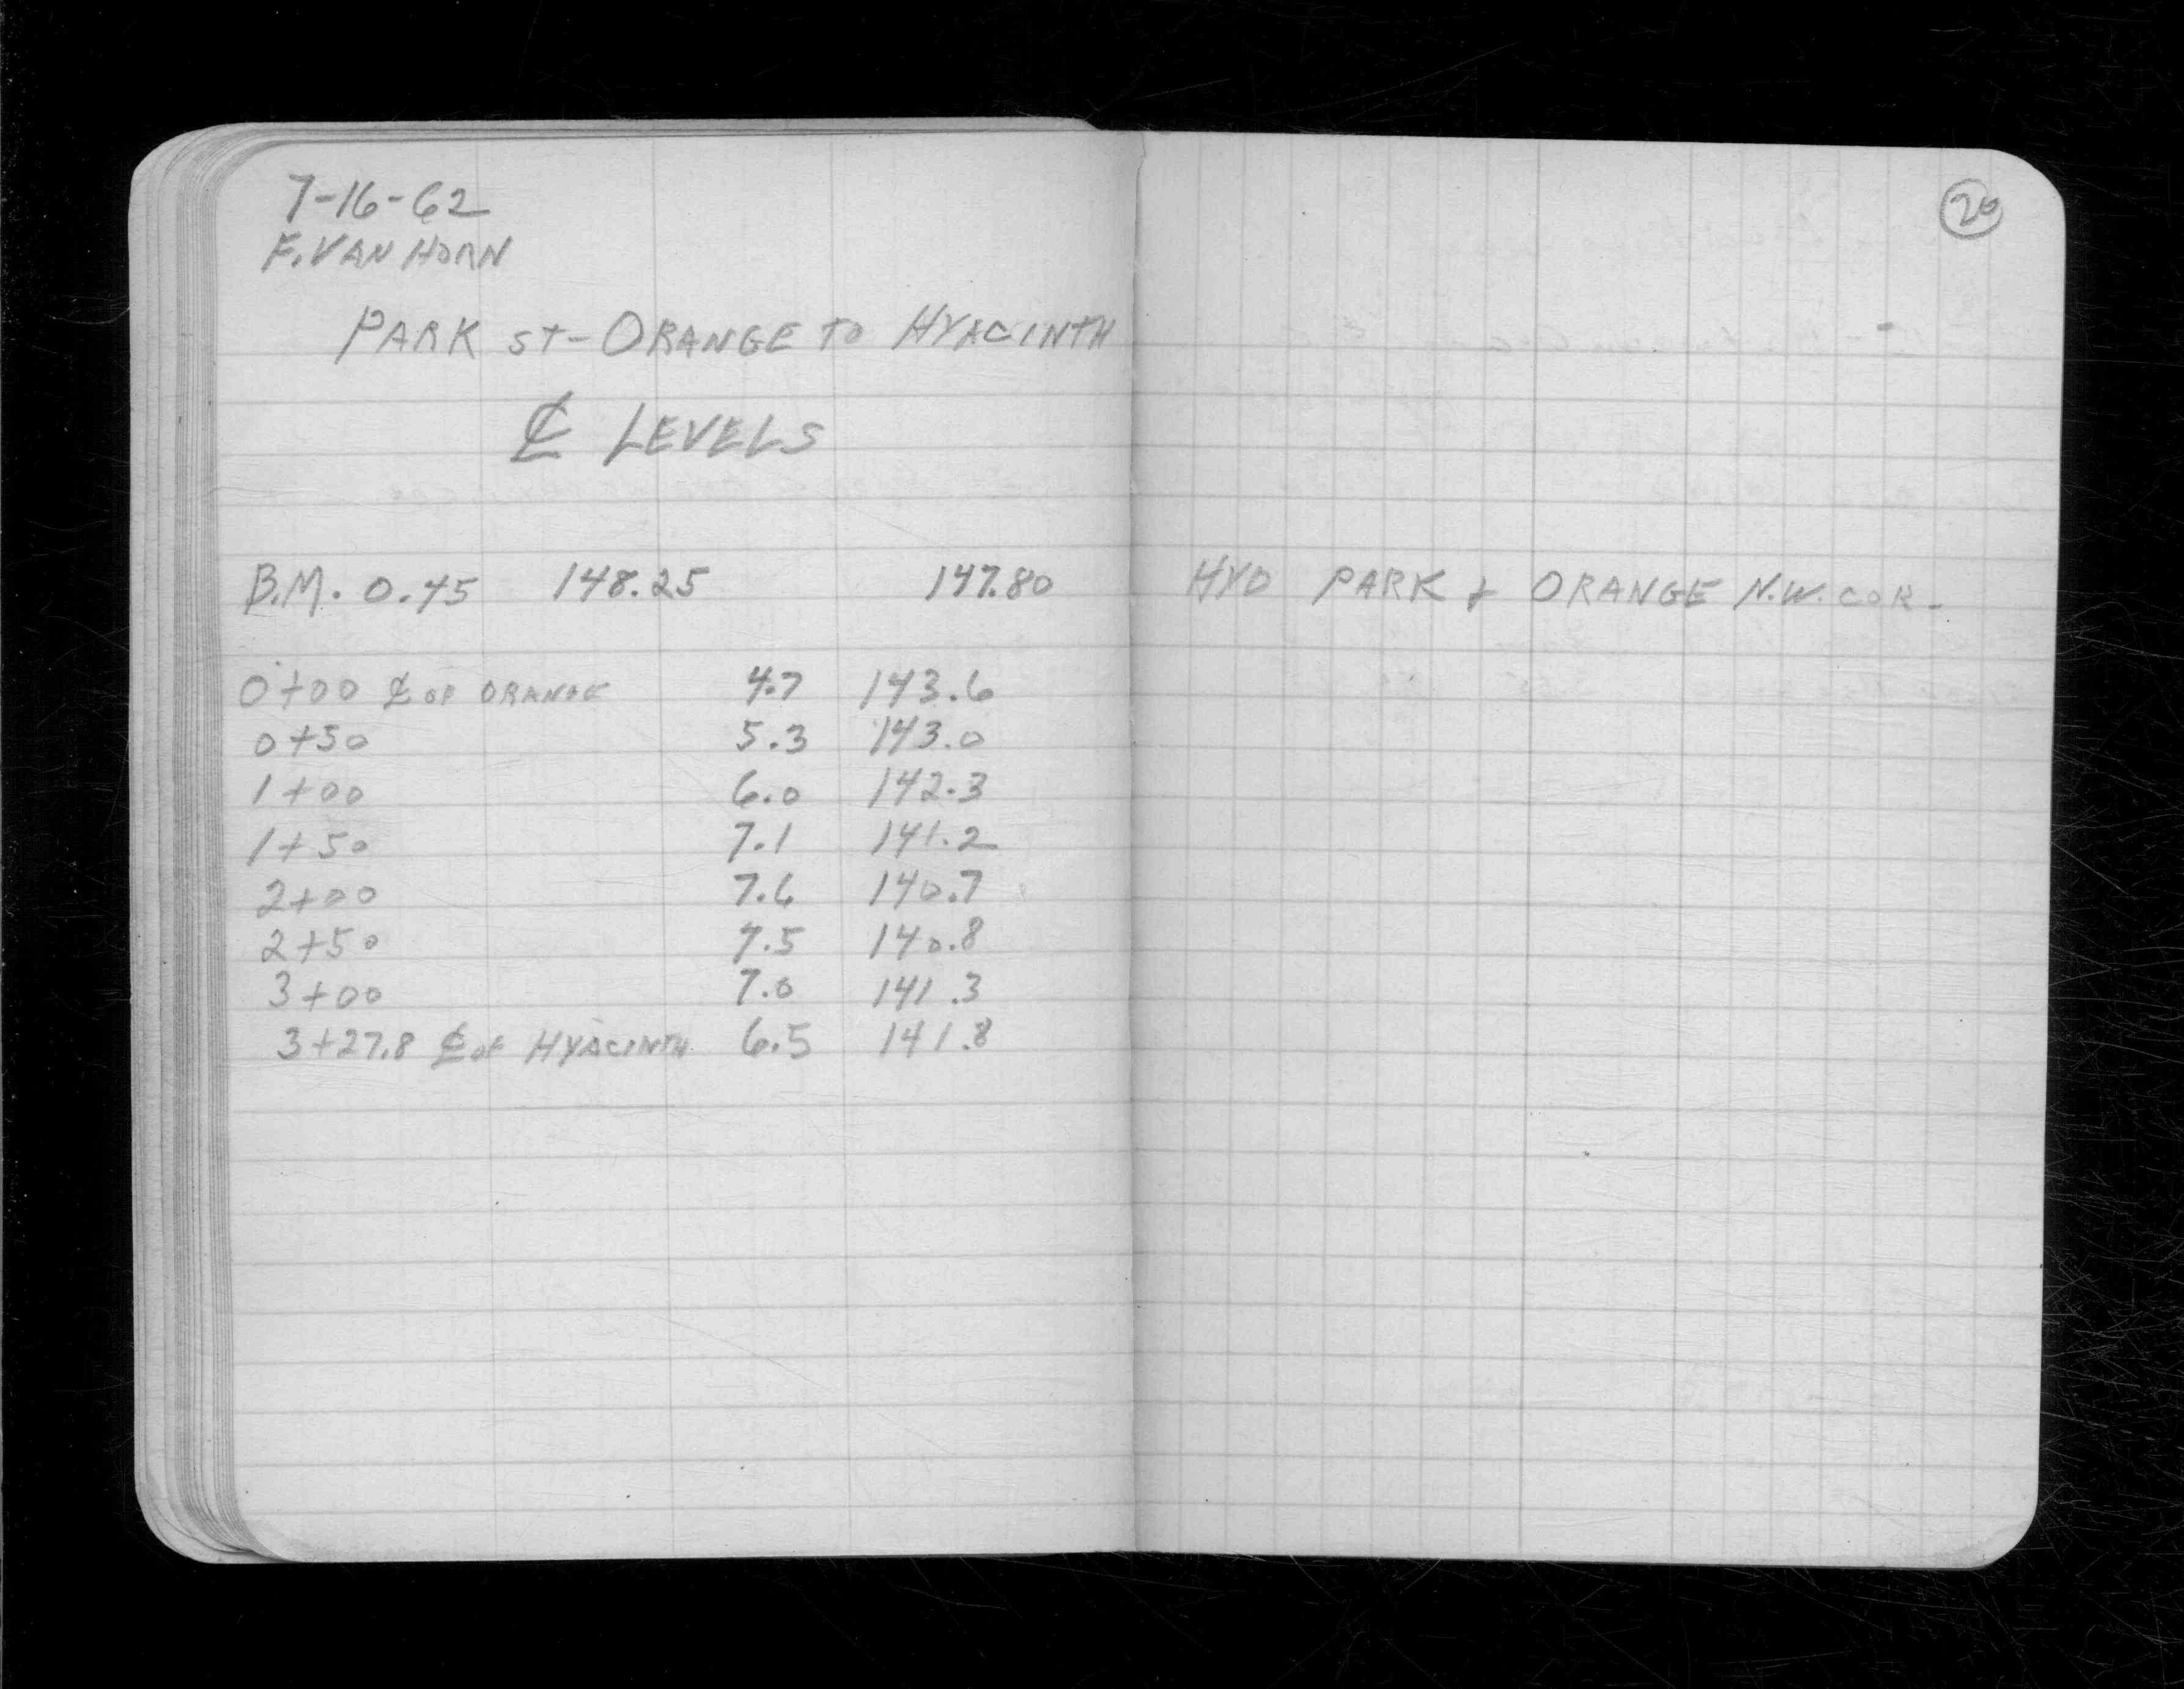 7-16-62
F. VAN HORN
PARK ST - ORANGE TO HYACINTH
℄ LEVELS
B.M. 0.45 148.25 147.80
0+00 ℄ OF ORANGE 4.7 143.6
0+50 5.3 143.0
1+00 6.0 142.3
1+50 7.1 141.2
2+00 7.6 140.7
2+50 7.5 140.8
3+00 7.0 141.3
3+27.8 ℄ of HYACINTH 6.5 141.8
20
HYD PARK + ORANGE N.W. COR-